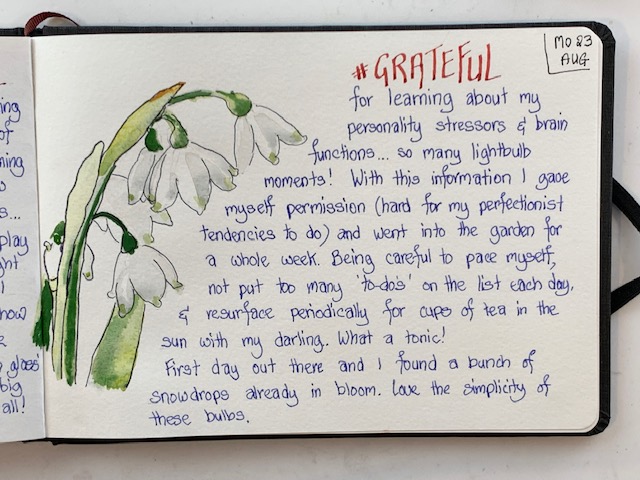 ing
of
ning
s...
play
ght
I
how
e
glass'
big
all!
#GRATEFUL
MO 23
AUG
for learning about my
personality stressors & brain
functions... so many lightbulb
moments! With this information I gave
myself permission (hard for my perfectionist
tendencies to do) and went into the garden for
a whole week. Being careful to pace myself,
not put too many 'to-do's' on the list each day,
& resurface periodically for cups of tea in the
sun with my darling. What a tonic!
First day out there and I found a bunch of
snowdrops already in bloom. Love the simplicity of
these bulbs.